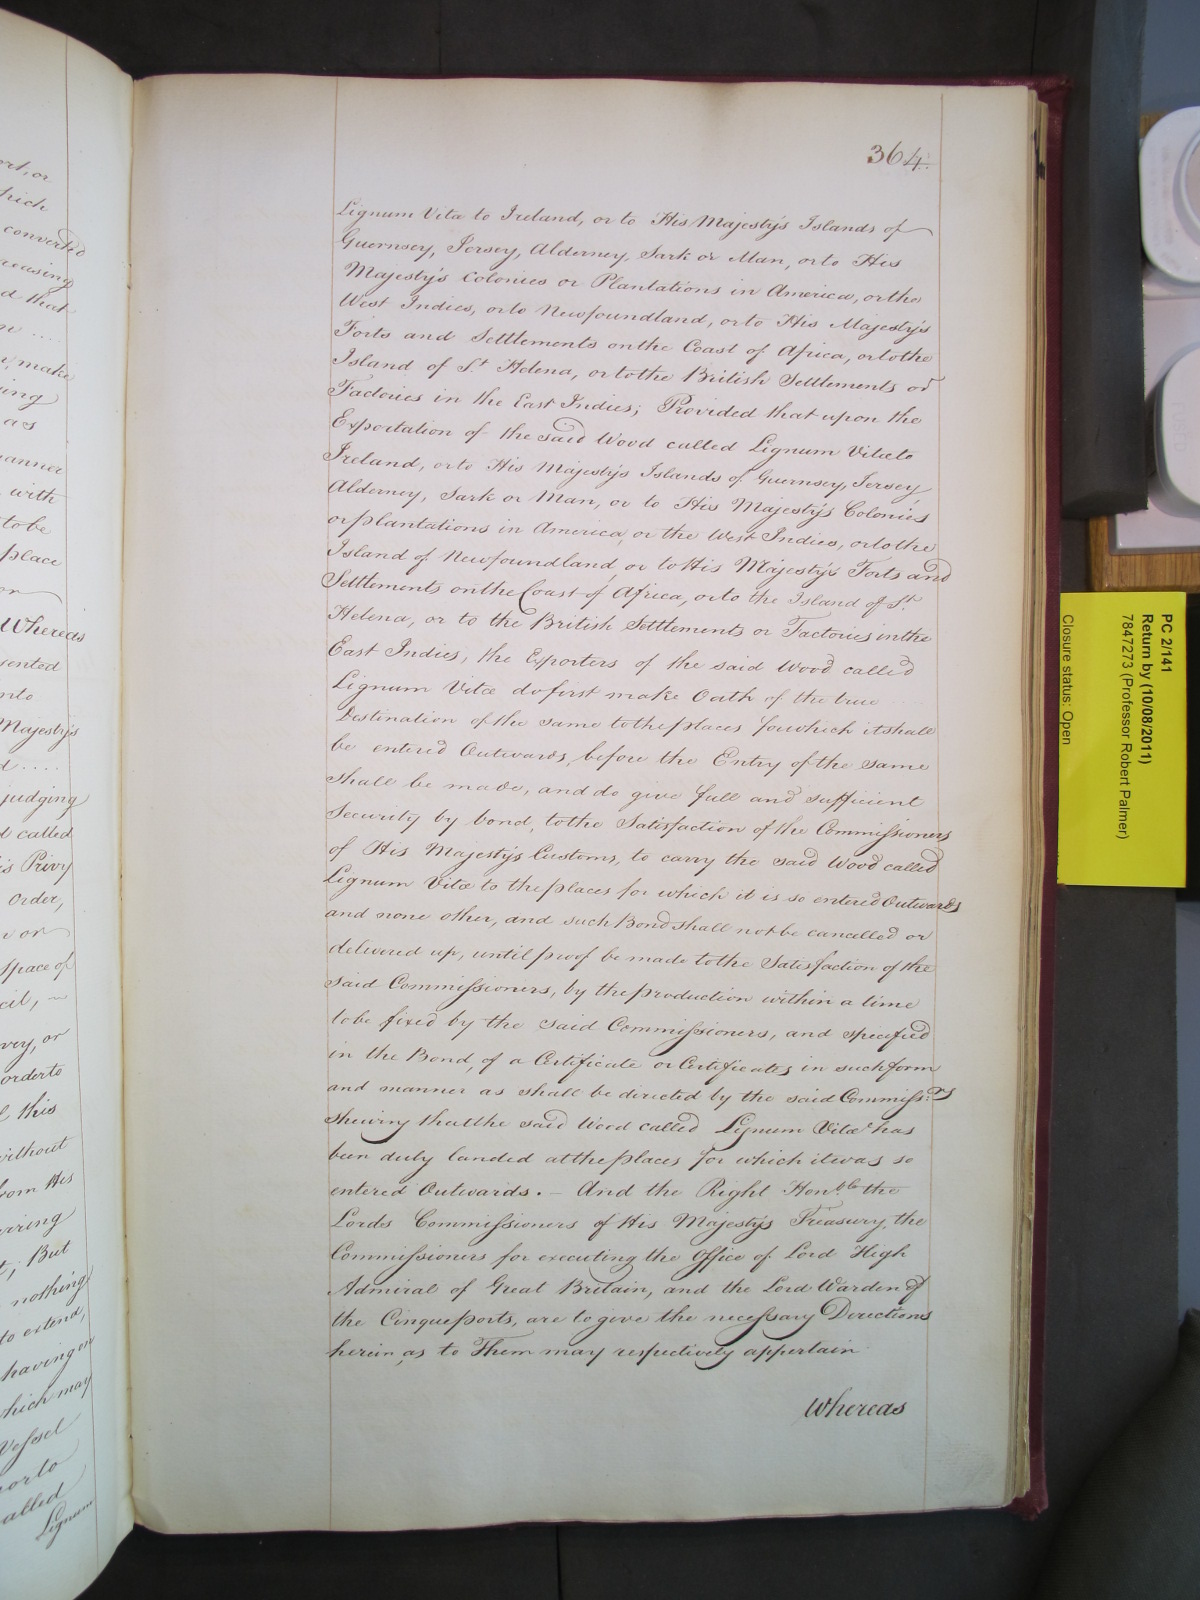 364.
Lignum Vitæ to Ireland, or to His Majesty's Islands of
Guernsey, Jersey, Alderney, Sark or Man, or to His
Majesty's Colonies or Plantations in America, or the
West Indies, or to Newfoundland, or to His Majesty's
Forts and Settlements on the Coast of Africa, or to the
Island of St Helena, or to the British Settlements or
Factories in the East Indies; Provided that upon the
Exportation of the said Wood called Lignum Vitæ to
Ireland, or to His Majesty's Islands of Guernsey, Jersey
Alderney, Sark or Man, or to His Majesty's Colonies
or plantations in America, or the West Indies, or to the
Island of Newfoundland or to His Majesty's Forts and
Settlements on the Coast of Africa, or to the Island of St.
Helena, or to the British Settlements or Factories in the
East Indies, the Exporters of the said Wood called
Lignum Vitæ do first make Oath of the true
Destination of the same to the places for which it shall
be entered Outwards, before the Entry of the same
shall be made, and do give full and sufficient
Security by bond, to the Satisfaction of the Commissioners
of His Majesty's Customs, to carry the said Wood called
Lignum Vitæ to the places for which it is so entered Outwards
and none other, and such Bond shall not be cancelled or
delivered up, until proof be made to the Satisfaction of the
said Commissioners, by the production within a time
to be fixed by the said Commissioners, and specified
in the Bond, of a Certificate or Certificates in such form
and manner as shall be directed by the said Commissrs
shewing that the said Wood called Lignum Vitæ has
been duly landed at the places for which it was so
entered Outwards. – And the Right Honble the
Lords Commissioners of His Majesty's Treasury, the
Commissioners for executing the Office of Lord High
Admiral of Great Britain, and the Lord Warden of
the Cinque ports, are to give the necessary Directions
herein, as to Them may respectively appertain
Whereas
which
converted
that
make
as
manner
with
to be
place
Whereas
Majesty's
judging
called
Privy
Order,
or
Space of
or
order to
this
without
from His
But
nothing
to extend,
having on
which may
Vessel
or to
called
Lignum
PC 2/141
Return by (10/08/2011)
7847273 (Professor Robert Palmer)
Closure status: Open